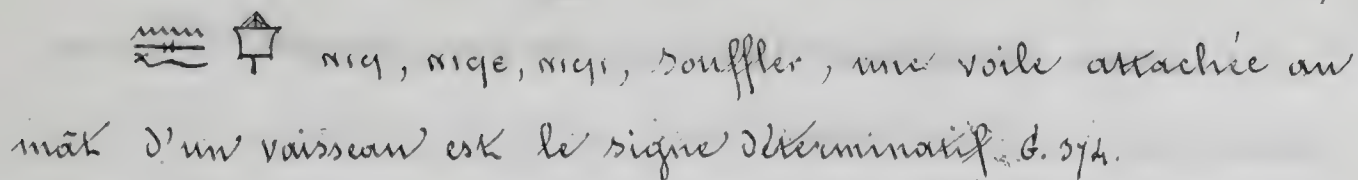 𓈖𓊃𓆑 𓊡 ⲛⲓϥ, ⲛⲓϥⲉ, ⲛⲓϥⲓ, souffler, une voile attachée au
mât d'un vaisseau est le signe déterminatif. G. 374.